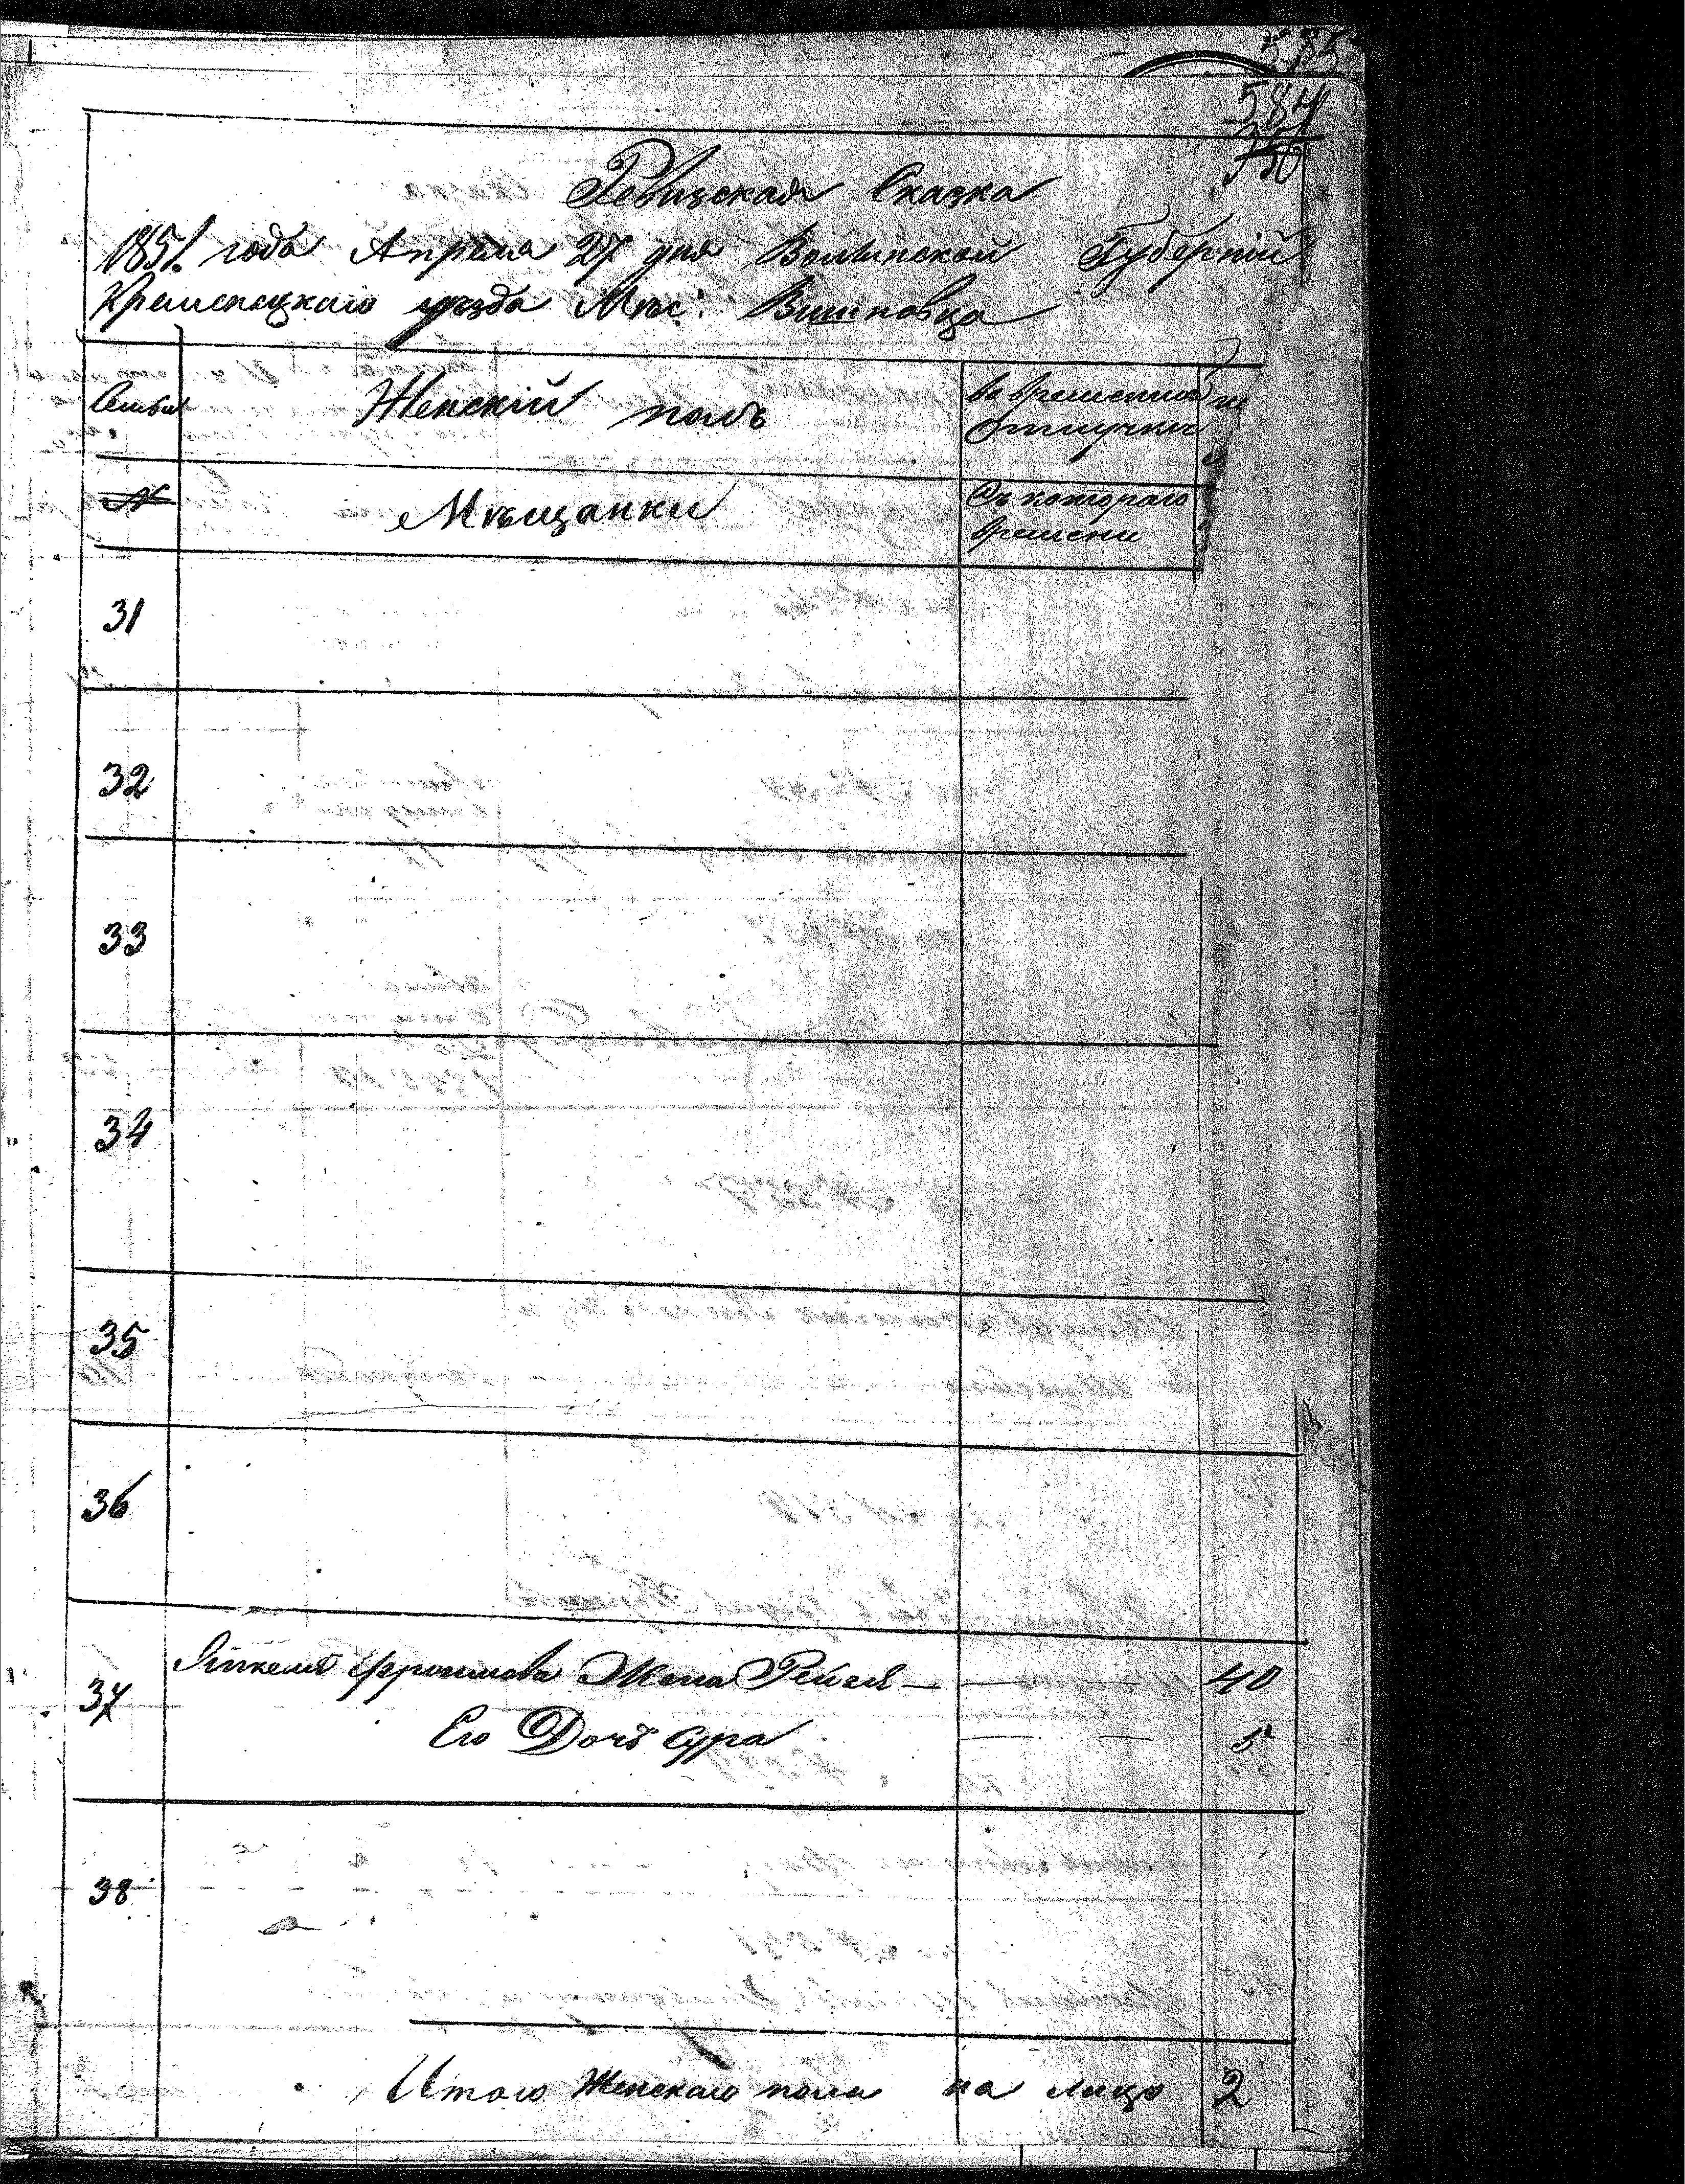 585
584
350
Ревизская Сказка
1851. года Апреля 27 дня Волынской Губерніи
Кременецкаго уѣзда Мѣс: Вишновца
Семьи
Женскій полъ
во временной
отлучки
№
Мѣщанки
Съ котораго
времени
31
32
33
34
35
36
37
Жена Рейзя — 40
Его Дочь Сура 5
38
Итого Женскаго пола на лицо 2